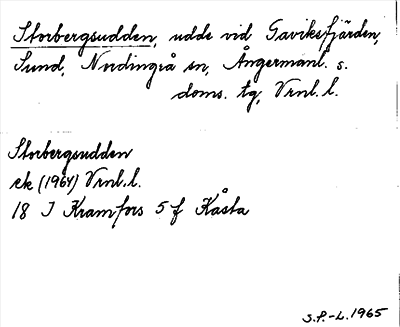 Storbergsudden, udde vid Gaviksfjärden,
Sund, Nordingrå sn, Ångermanl. s.
doms. tg, Vrnl. l.
Storbergsudden
ek (1964) Vrnl. l.
18 J Kramfors 5 f Kåsta
S.P.-L. 1965